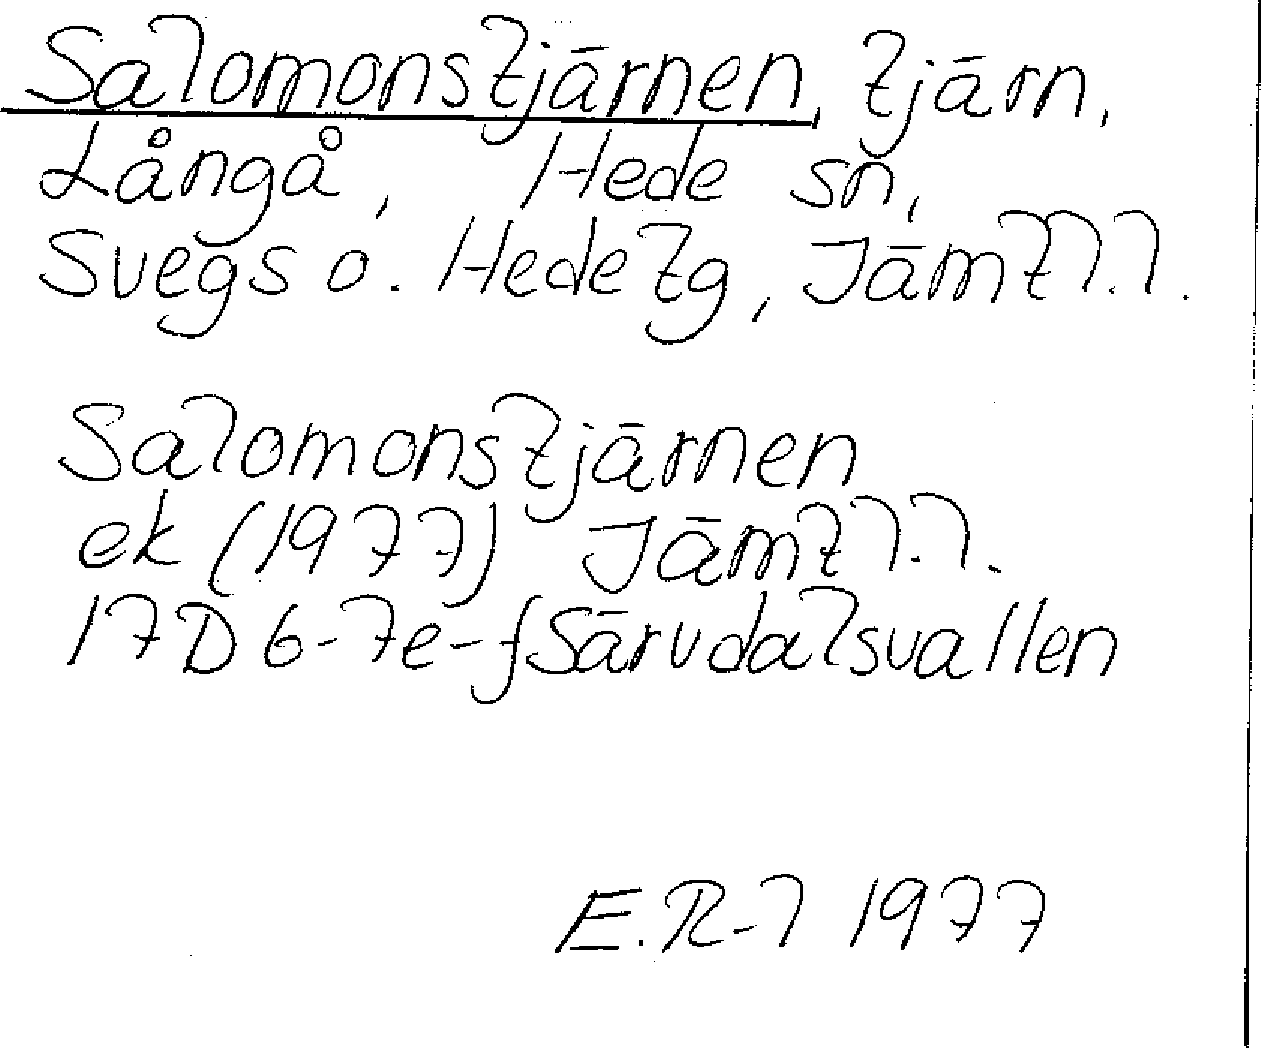 Salomonstjärnen, tjärn,
Långå, Hede sn,
Svegs o. Hede tg, Jämtl.l.
Salomonstjärnen
ek (1977) Jämtl.l.
17D 6-7e-f Särvdalsvallen
E.R-l 1977